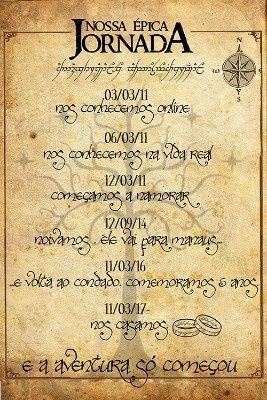 NOSSA ÉPICA
JORNADA
N
03/03/11
nos conhecemos online
06/03/11
nos conhecemos na vida real
12/03/11
começamos a namorar
12/09/14
noivamos... ele vai para manaus...
11/03/16
...e volta ao condado. comemoramos 5 anos
11/03/17-
nos casamos
e a aventura só começou